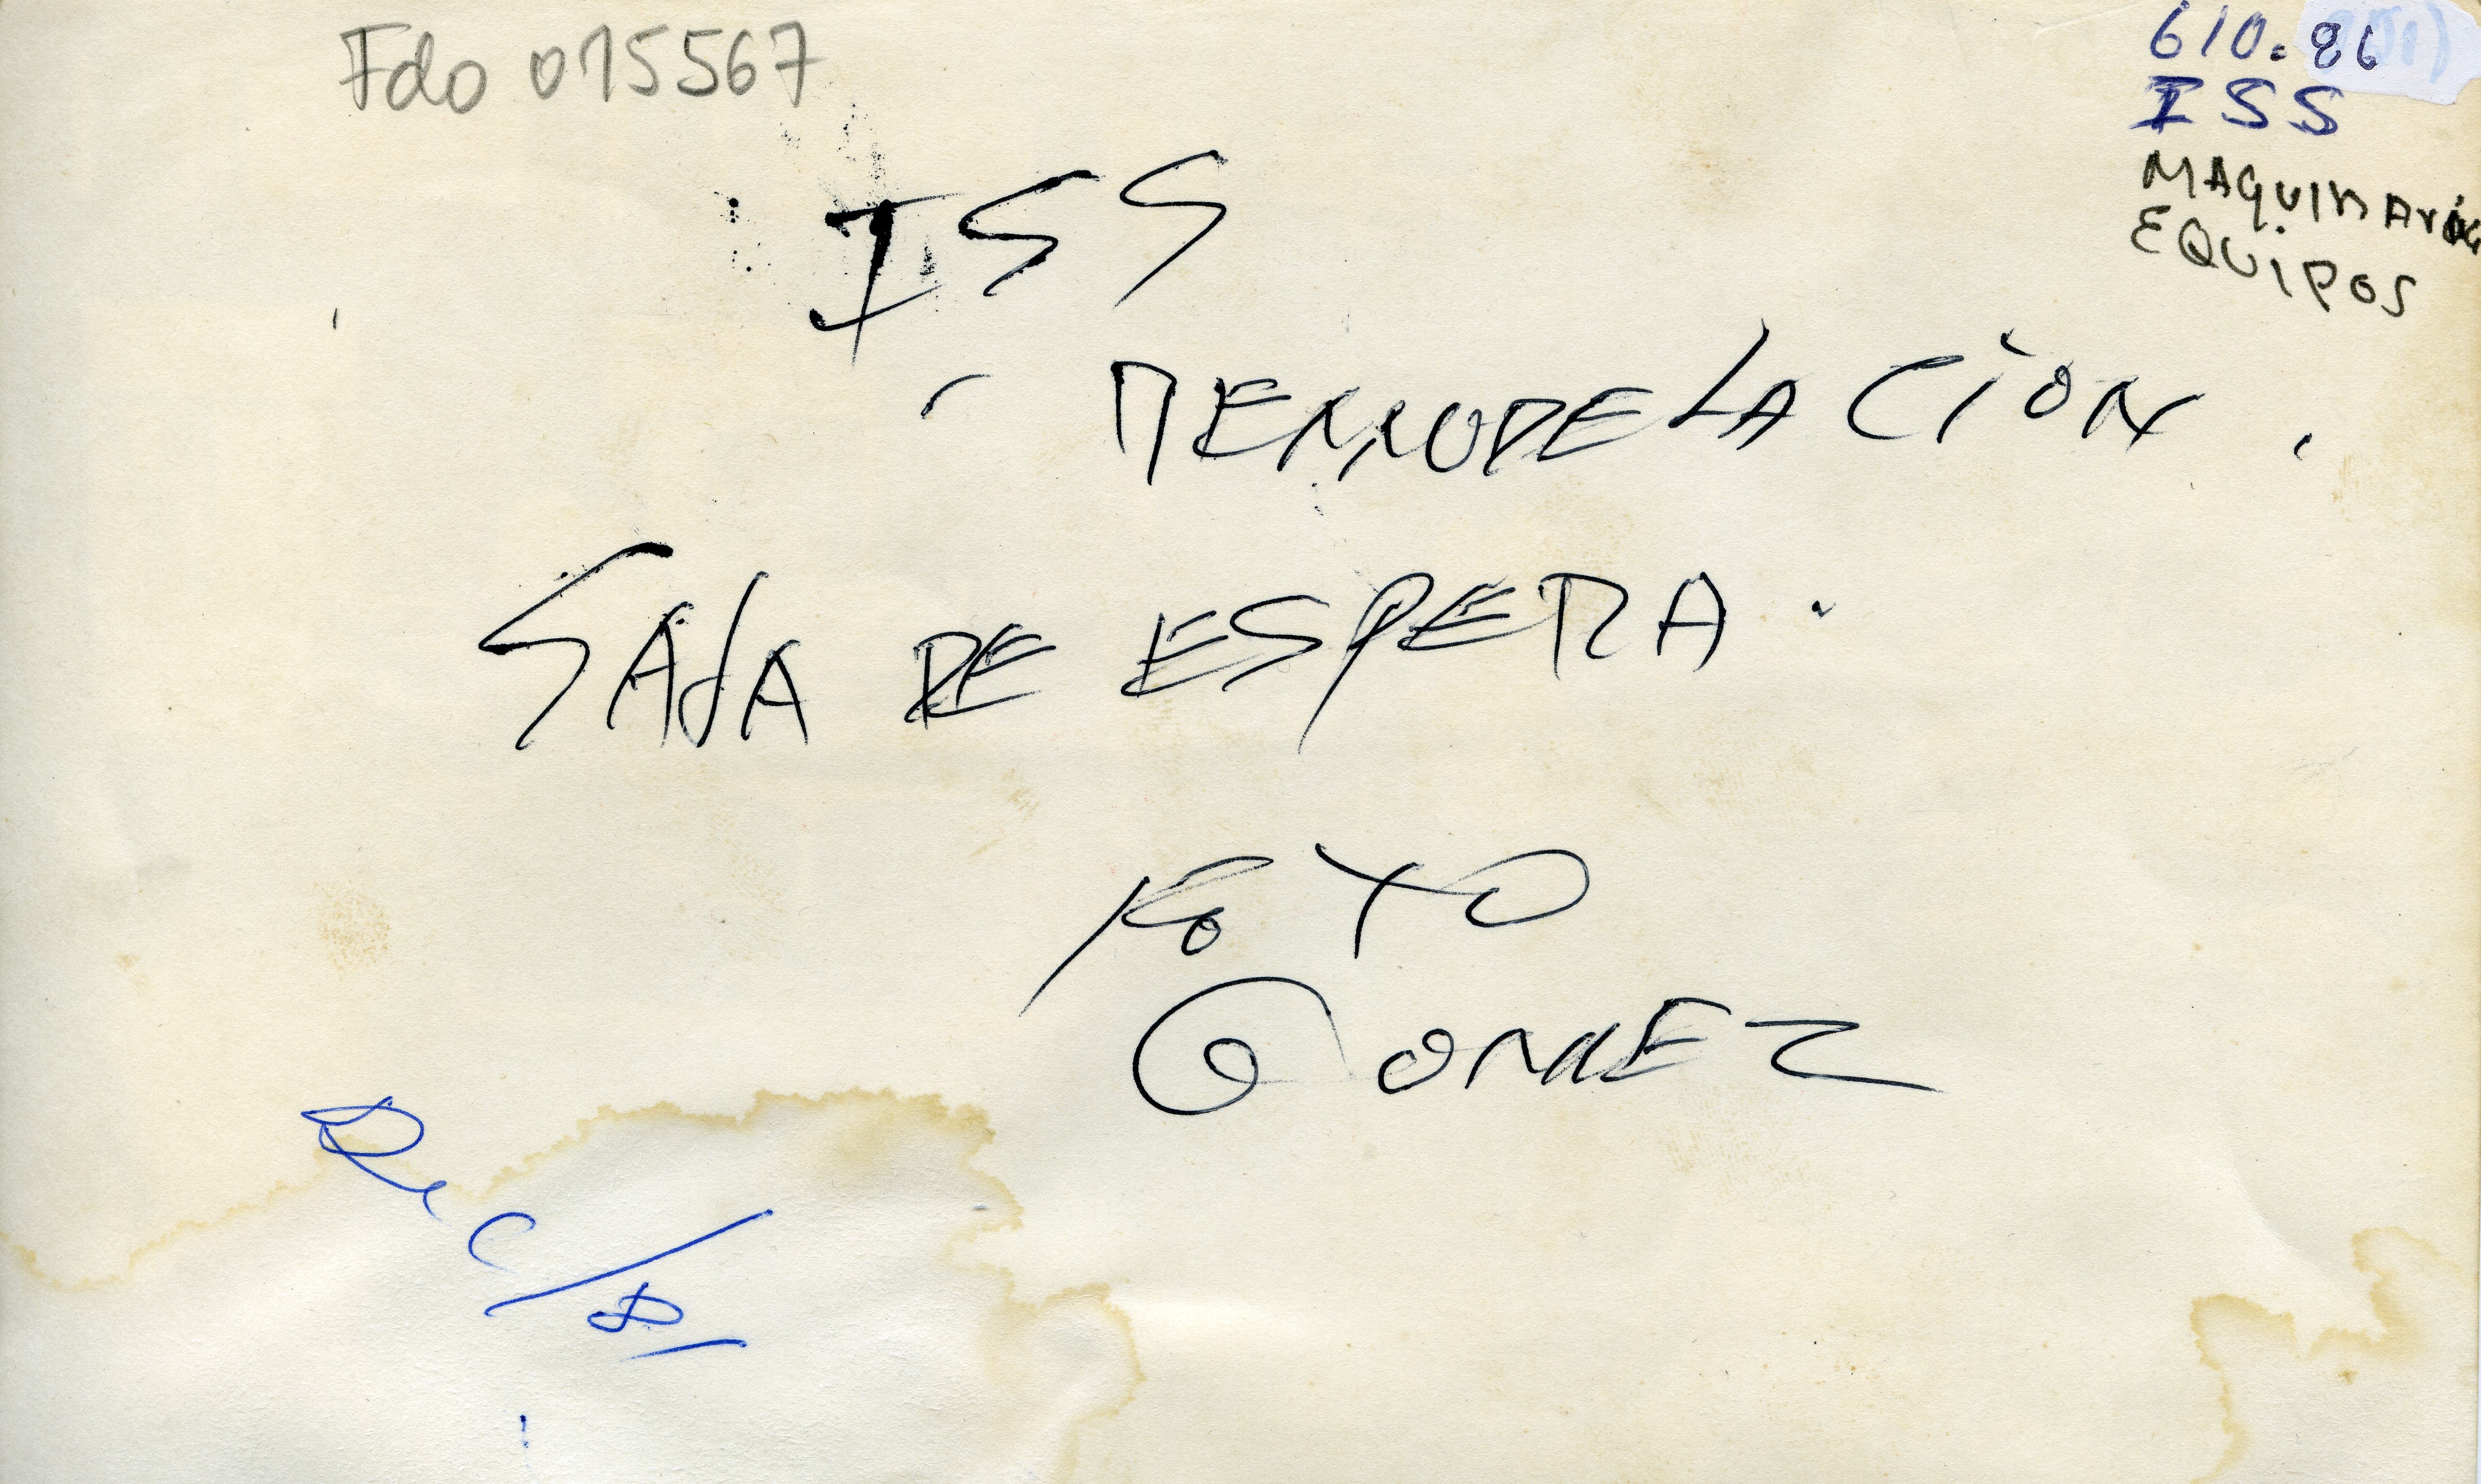 Fdo 015567
610.86
ISS
MAQUINARIA
EQUIPOS
ISS
REMODELACION.
SALA DE ESPERA.
FOTO
GOMEZ
Rec/